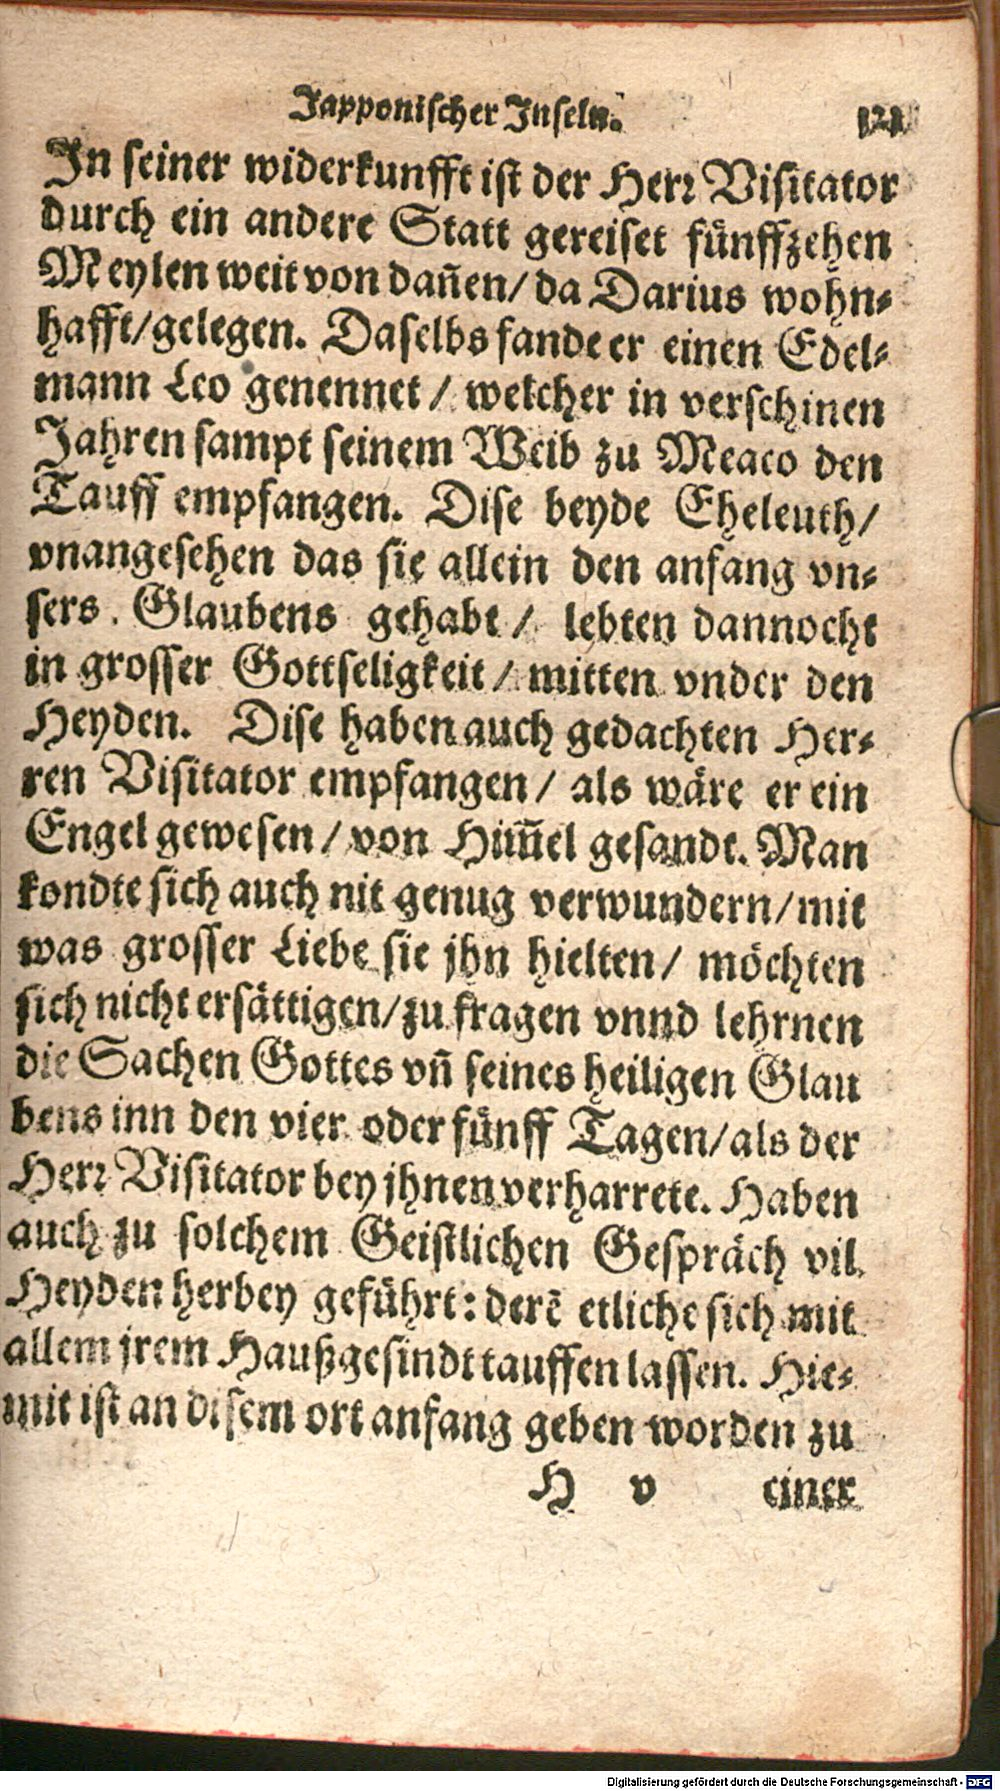 Japponischer Inseln. 121
In seiner widerkunfft ist der Herr Visitator
durch ein andere Statt gereiset fünffzehen
Meylen weit von dañen/ da Darius wohn-
hafft/gelegen. Daselbs fande er einen Edel-
mann Leo genennet / welcher in verschinen
Jahren sampt seinem Weib zu Meaco den
Tauff empfangen. Dise beyde Eheleuth/
vnangesehen das sie allein den anfang vn-
sers. Glaubens gehabt / lebten dannocht
in grosser Gottseligkeit / mitten vnder den
Heyden. Dise haben auch gedachten Her-
ren Visitator empfangen / als wäre er ein
Engel gewesen / von Him̃el gesandt. Man
kondte sich auch nit genug verwundern/mit
was grosser Liebe sie jhn hielten / möchten
sich nicht ersättigen/zu fragen vnnd lehrnen
die Sachen Gottes vñ seines heiligen Glau
bens inn den vier oder fünff Tagen/als der
Herr Visitator bey jhnen verharrete. Haben
auch zu solchem Geistlichen Gespräch vil
Heyden herbey geführt: derẽ etliche sich mit
allem jrem Haußgesindt tauffen lassen. Hie-
mit ist an disem ort anfang geben worden zu
H v einer
Digitalisierung gefördert durch die Deutsche Forschungsgemeinschaft - DFG